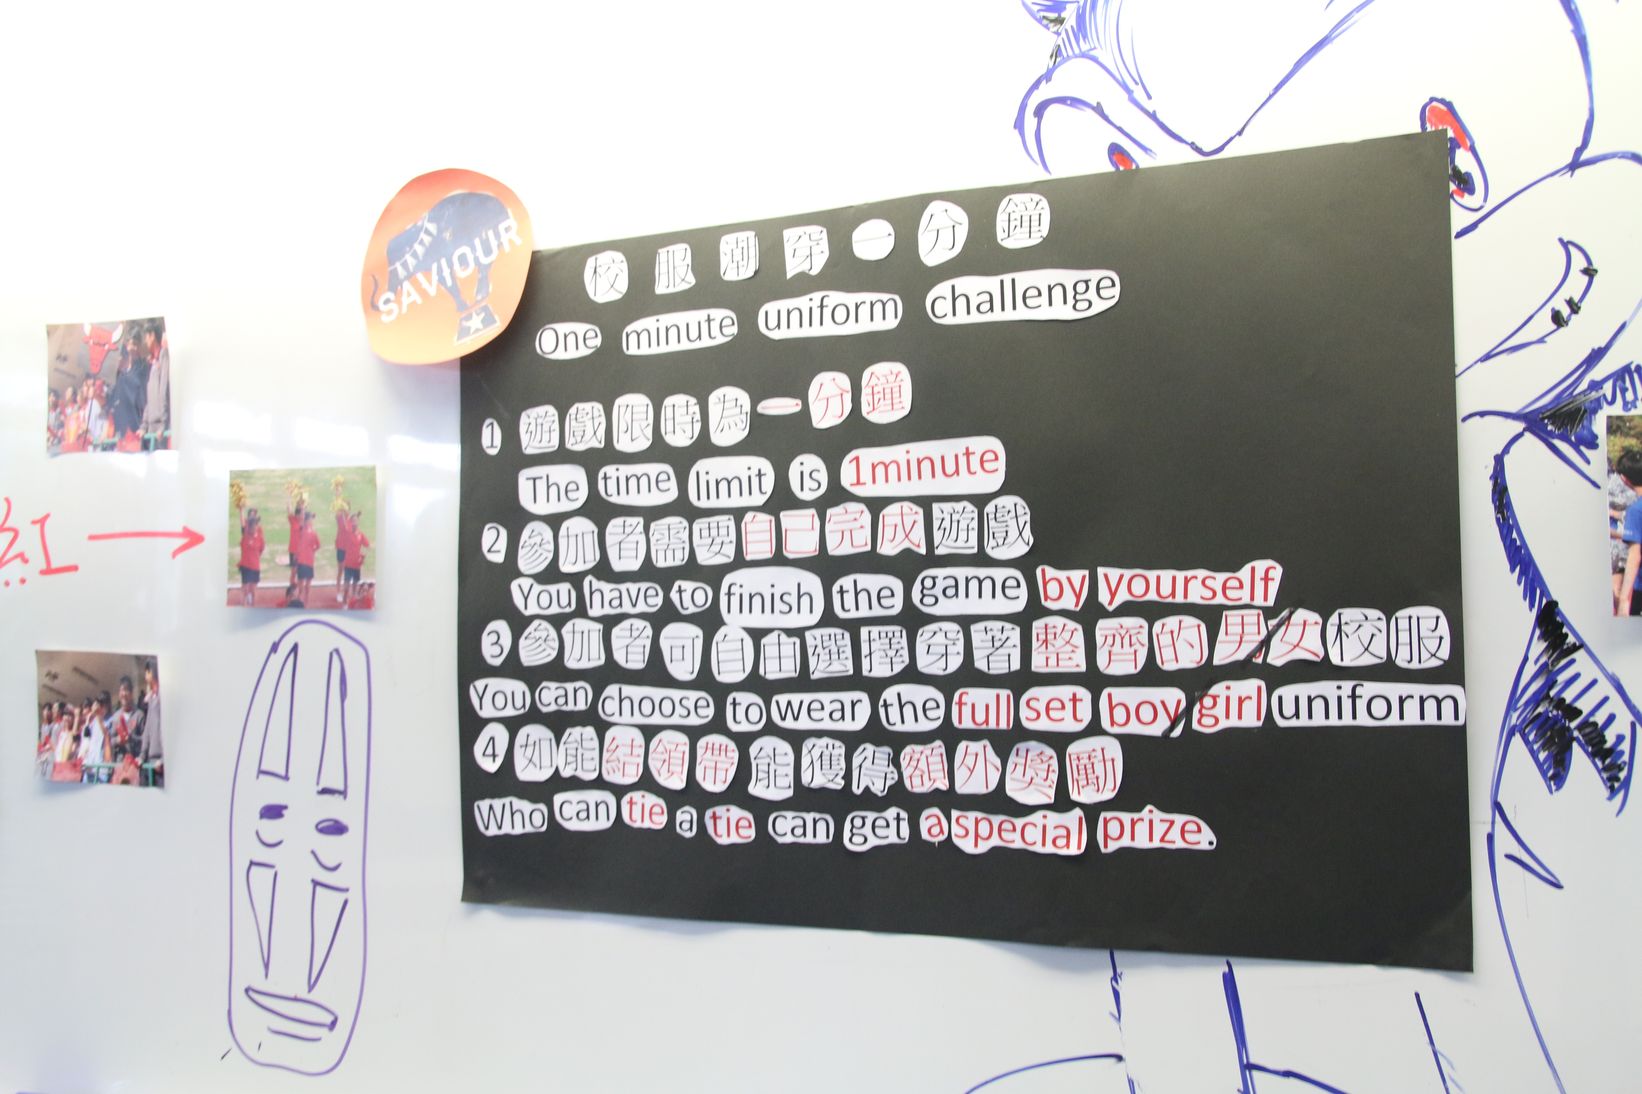 SAVIOUR
校服潮穿一分鐘
One minute uniform challenge
1 遊戲限時為一分鐘
The time limit is 1minute
2 參加者需要自己完成遊戲
You have to finish the game by yourself
3 參加者可自由選擇穿著整齊的男/女校服
You can choose to wear the full set boy/girl uniform
4 如能結領帶能獲得額外獎勵
Who can tie a tie can get a special prize.
紅